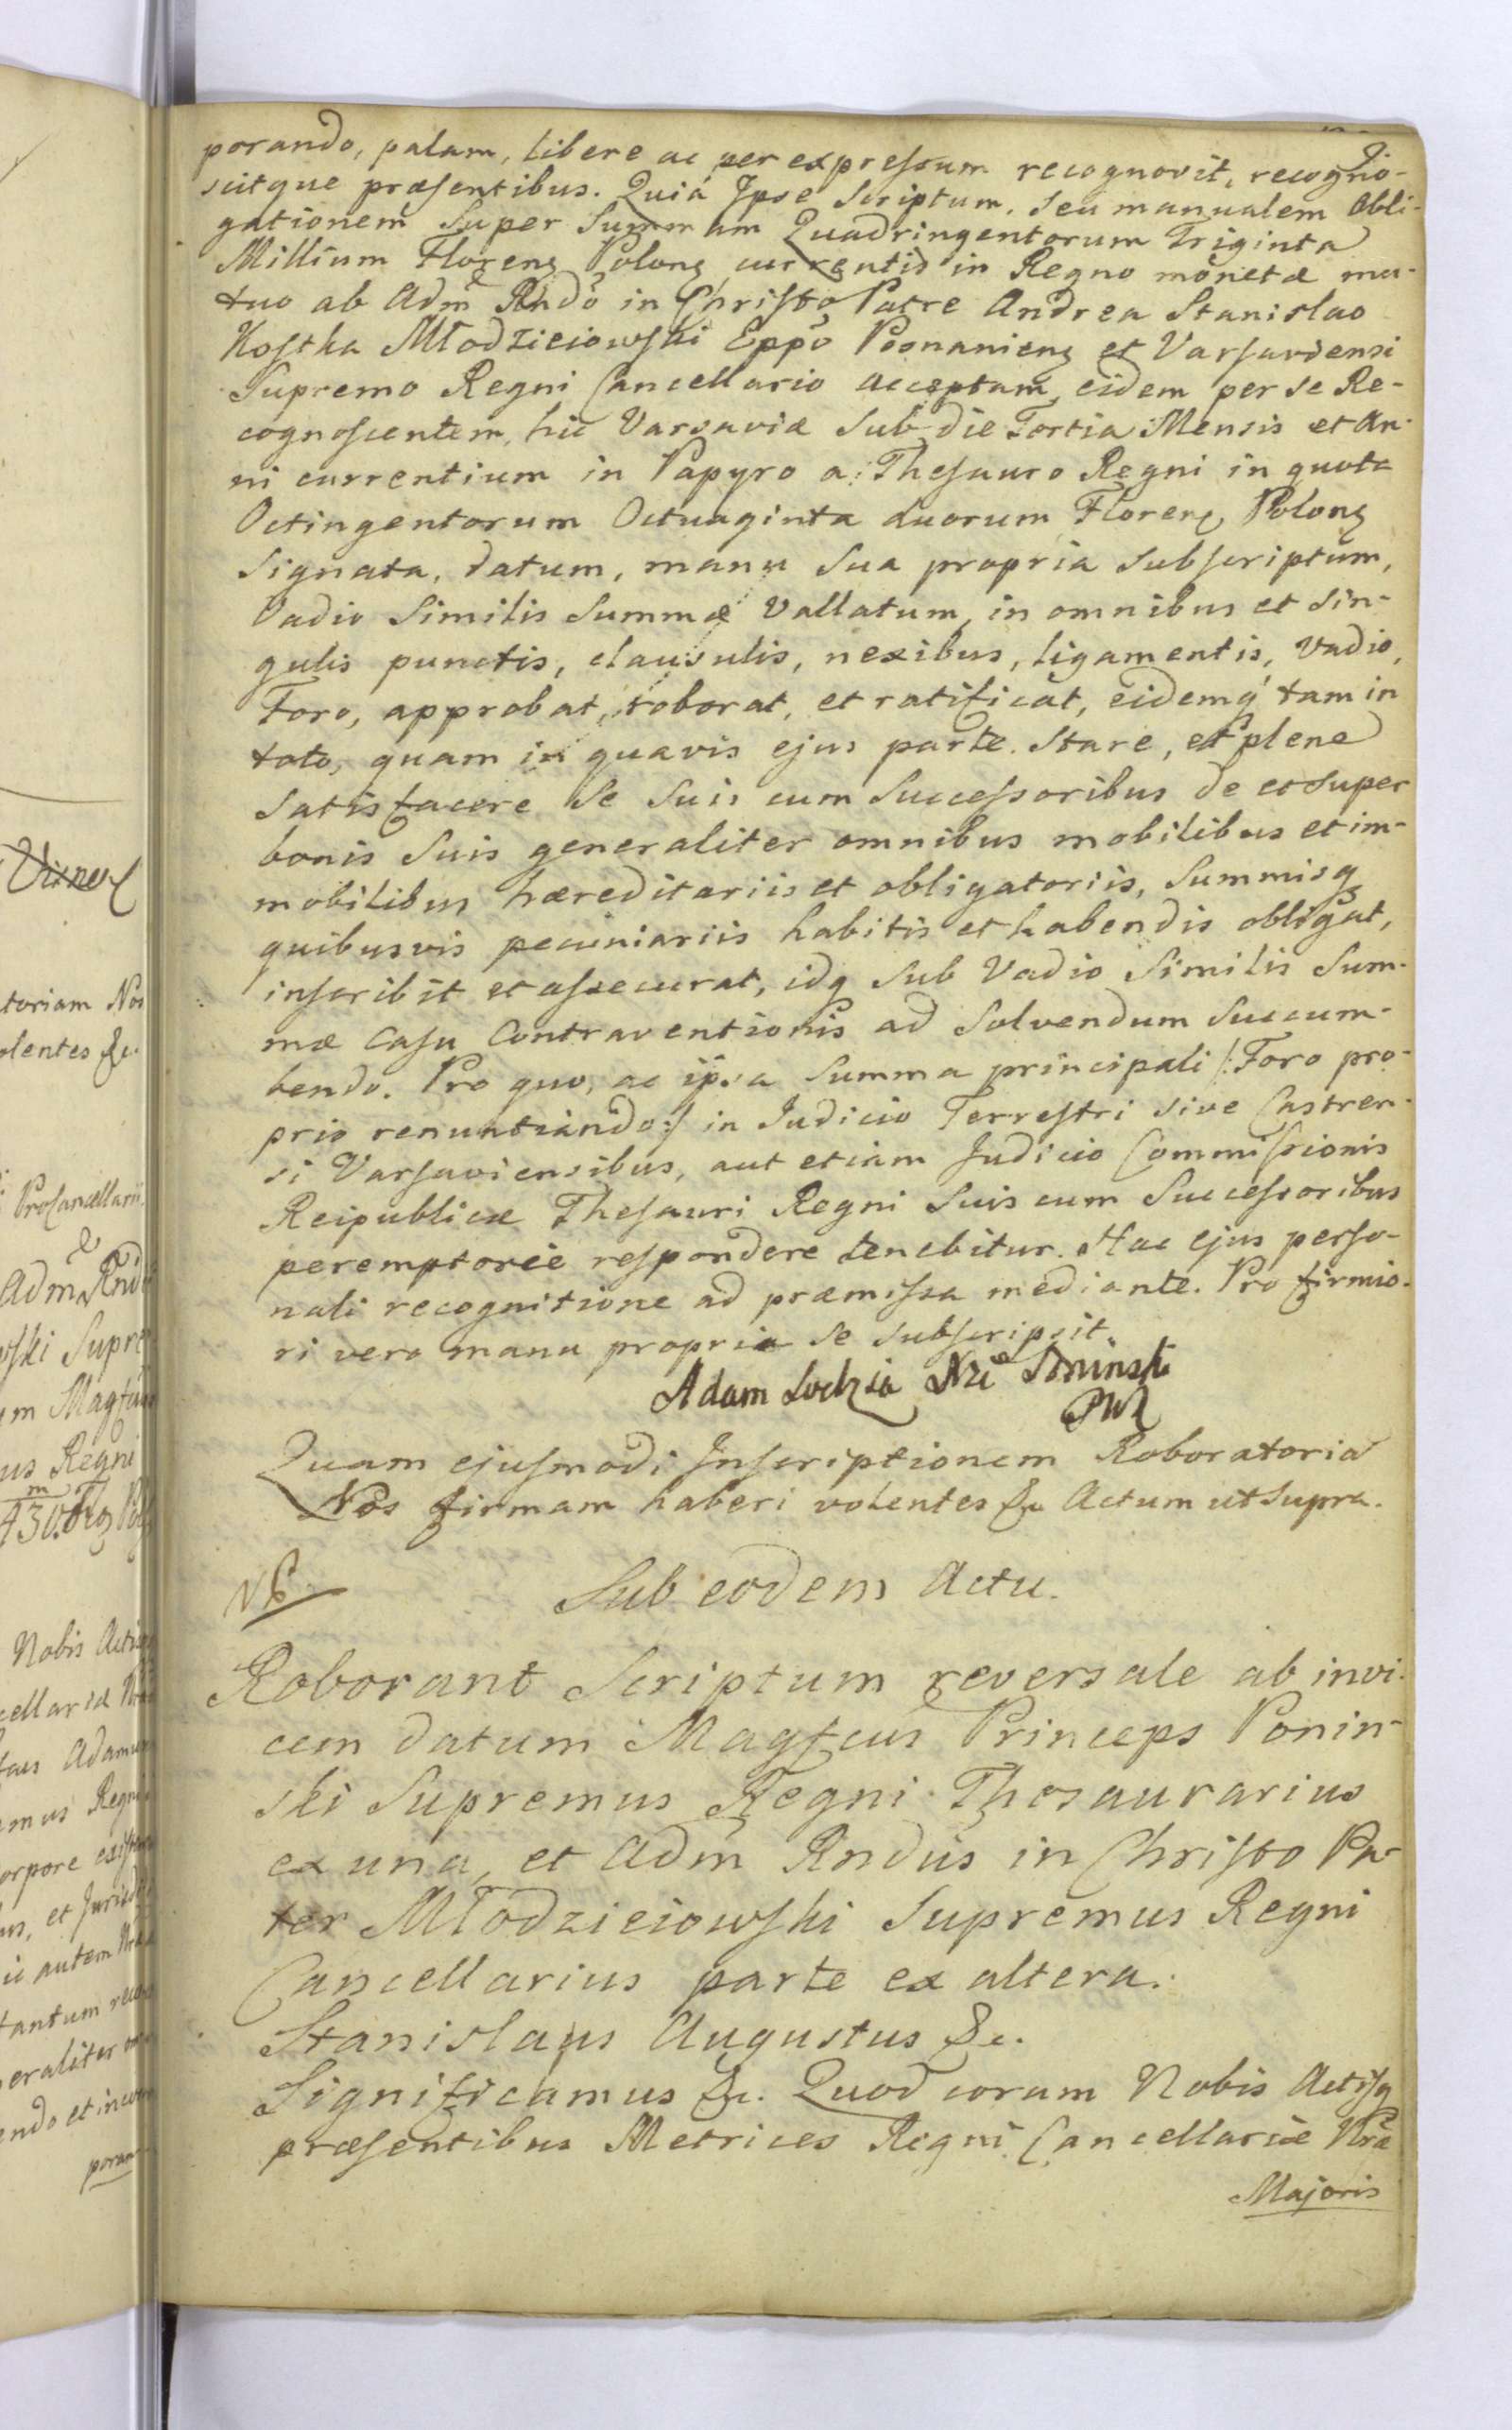 porando, palam, libere ac per expressum recognovit, recogno-
scitque præsentibus. Quia Ipse Scriptum, seu manualem Obli-
gationem Super Summam Quadringentorum Triginta
Millium Floreng Polong currentis in Regno monetæ mu-
tuo ab Adm Rndo in Christo Patre Andrea Stanislao
Kostka Młodzieiowski Eppo Posnanieng et Varsaviensi
Supremo Regni Cancellario acceptam, eidem per se Re-
cognoscentem, hic Varsaviæ Sub die Tertia Mensis et An-
ni currentium in Papyro a Thesauro Regni in quota
Octingentorum Octuaginta duorum Floreng Polong
Signata, datum, manu Sua propria Subscriptum,
Vadio Similis Summæ Vallatum, in omnibus et Sin-
gulis punctis, clausulis, nexibus, ligamentis, Vadio,
Foro, approbat, roborat, et ratificat, eidemq tam in
toto, quam in quavis ejus parte. Stare, et plene
Satisfacere Se Suis cum Successoribus de et super
bonis Suis generaliter omnibus mobilibus et im-
mobilibus hæreditariis et obligatoriis, Summisq
quibusvis pecuniariis habitis et habendis obligat,
inscribit et assecurat, idq Sub Vadio Similis Sum-
mæ Casu Contraventionis ad Solvendum Succum-
bendo. Pro quo, ac ipsa Summa principali /: Foro pro-
prio renuntiando :/ in Judicio Terrestri sive Castren-
si Varsaviensibus, aut etiam Judicio Commissionis
Reipublicæ Thesauri Regni Suis cum Successoribus
peremptorie respondere tenebitur. Hac ejus perso-
nali recognitione ad præmissa mediante. Pro firmio-
ri vero manu propria Se Subscripsit.
Adam Lodzia Xże Poninski
PWK
Quam ejusmodi Inscriptionem Roboratoria
Nos firmam haberi volentes &c Actum ut Supra.
NB
Sub eodem Actu.
Roborant Scriptum reversale ab invi-
cem datum Magfcus Princeps Ponin-
ski Supremus Regni Thesaurarius
ex una, et Adm Rndus in Christo Pa-
ter Młodzieiowski Supremus Regni
Cancellarius parte ex altera.
Stanislaus Augustus &c.
Significamus &c. Quod coram Nobis Actisq
præsentibus Metrices Regni Cancellariæ Nræ
Majoris
toriam Nos
olentes &c.
ProCancellarii
Adm Rnd
wski Supre
us Regni
Nobis Acti
cellariæ
Adam
mus Regni
corpore
et Juris
autem
tantum
eraliter
endo et
poran